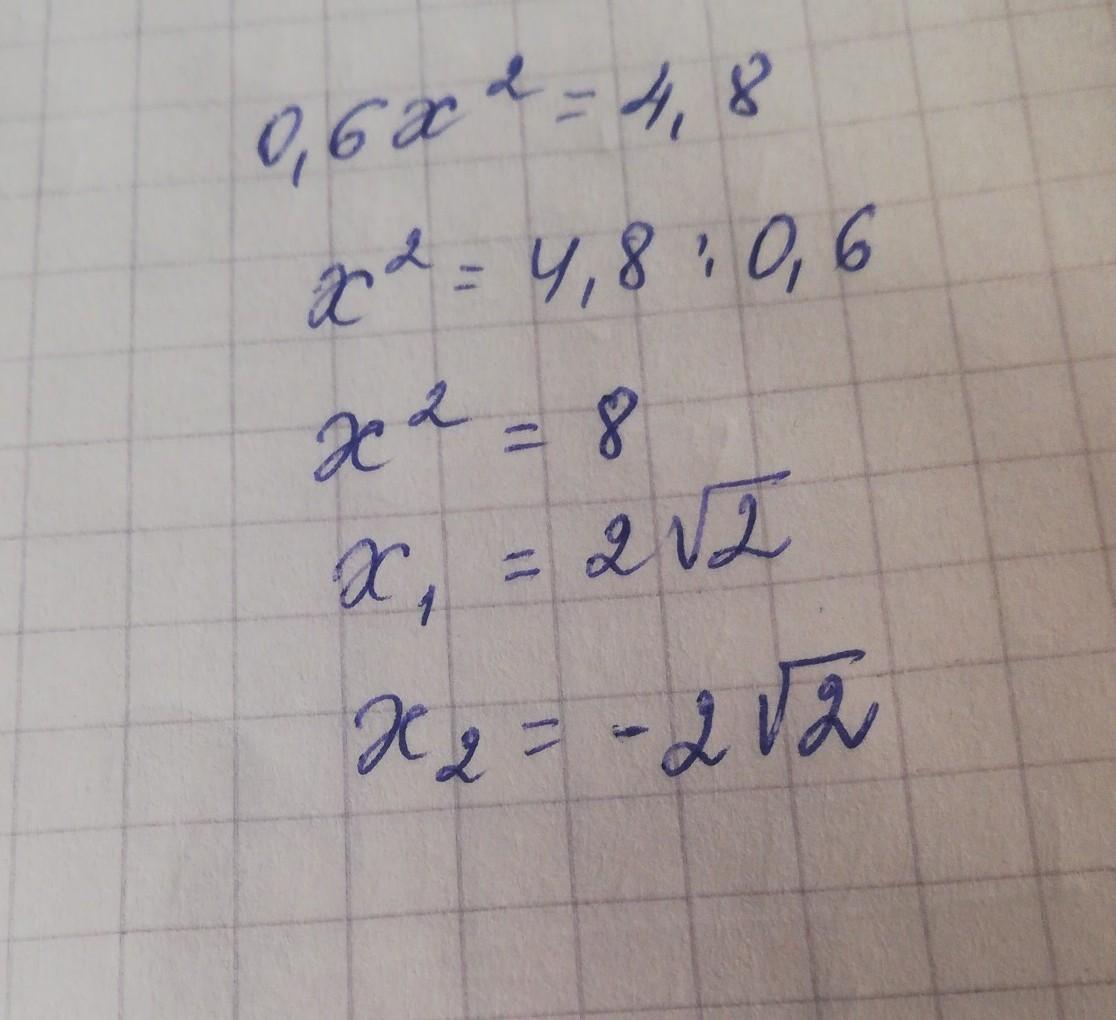 0,6x² = 4,8
x² = 4,8 : 0,6
x² = 8
x₁ = 2√2
x₂ = -2√2